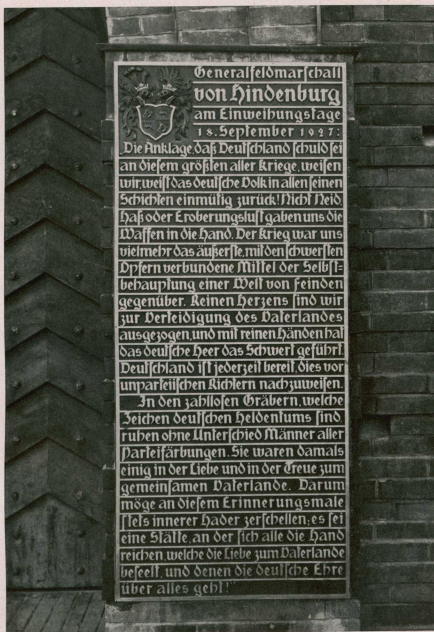 Generalfeldmarschall
von Hindenburg
am Einweihungstage
18. September 1927:
Die Anklage, daß Deutschland schuld sei
an diesem größten aller Kriege, weisen
wir, weist das deutsche Volk in allen seinen
Schichten einmütig zurück! Nicht Neid,
Haß oder Eroberungslust gaben uns die
Waffen in die Hand. Der Krieg war uns
vielmehr das äußerste, mit den schwersten
Opfern verbundene Mittel der Selbst-
behauptung einer Welt von Feinden
gegenüber. Reinen Herzens sind wir
zur Verteidigung des Vaterlandes
ausgezogen, und mit reinen Händen hat
das deutsche Heer das Schwert geführt.
Deutschland ist jederzeit bereit, dies vor
unparteiischen Richtern nachzuweisen.
In den zahllosen Gräbern, welche
Zeichen deutschen Heldentums sind
ruhen ohne Unterschied Männer aller
Parteifärbungen. Sie waren damals
einig in der Liebe und in der Treue zum
gemeinsamen Vaterlande. Darum
möge an diesem Erinnerungsmale
stets innerer Hader zerschellen; es sei
eine Stätte, an der sich alle die Hand
reichen, welche die Liebe zum Vaterlande
beseelt, und denen die deutsche Ehre
über alles geht!"